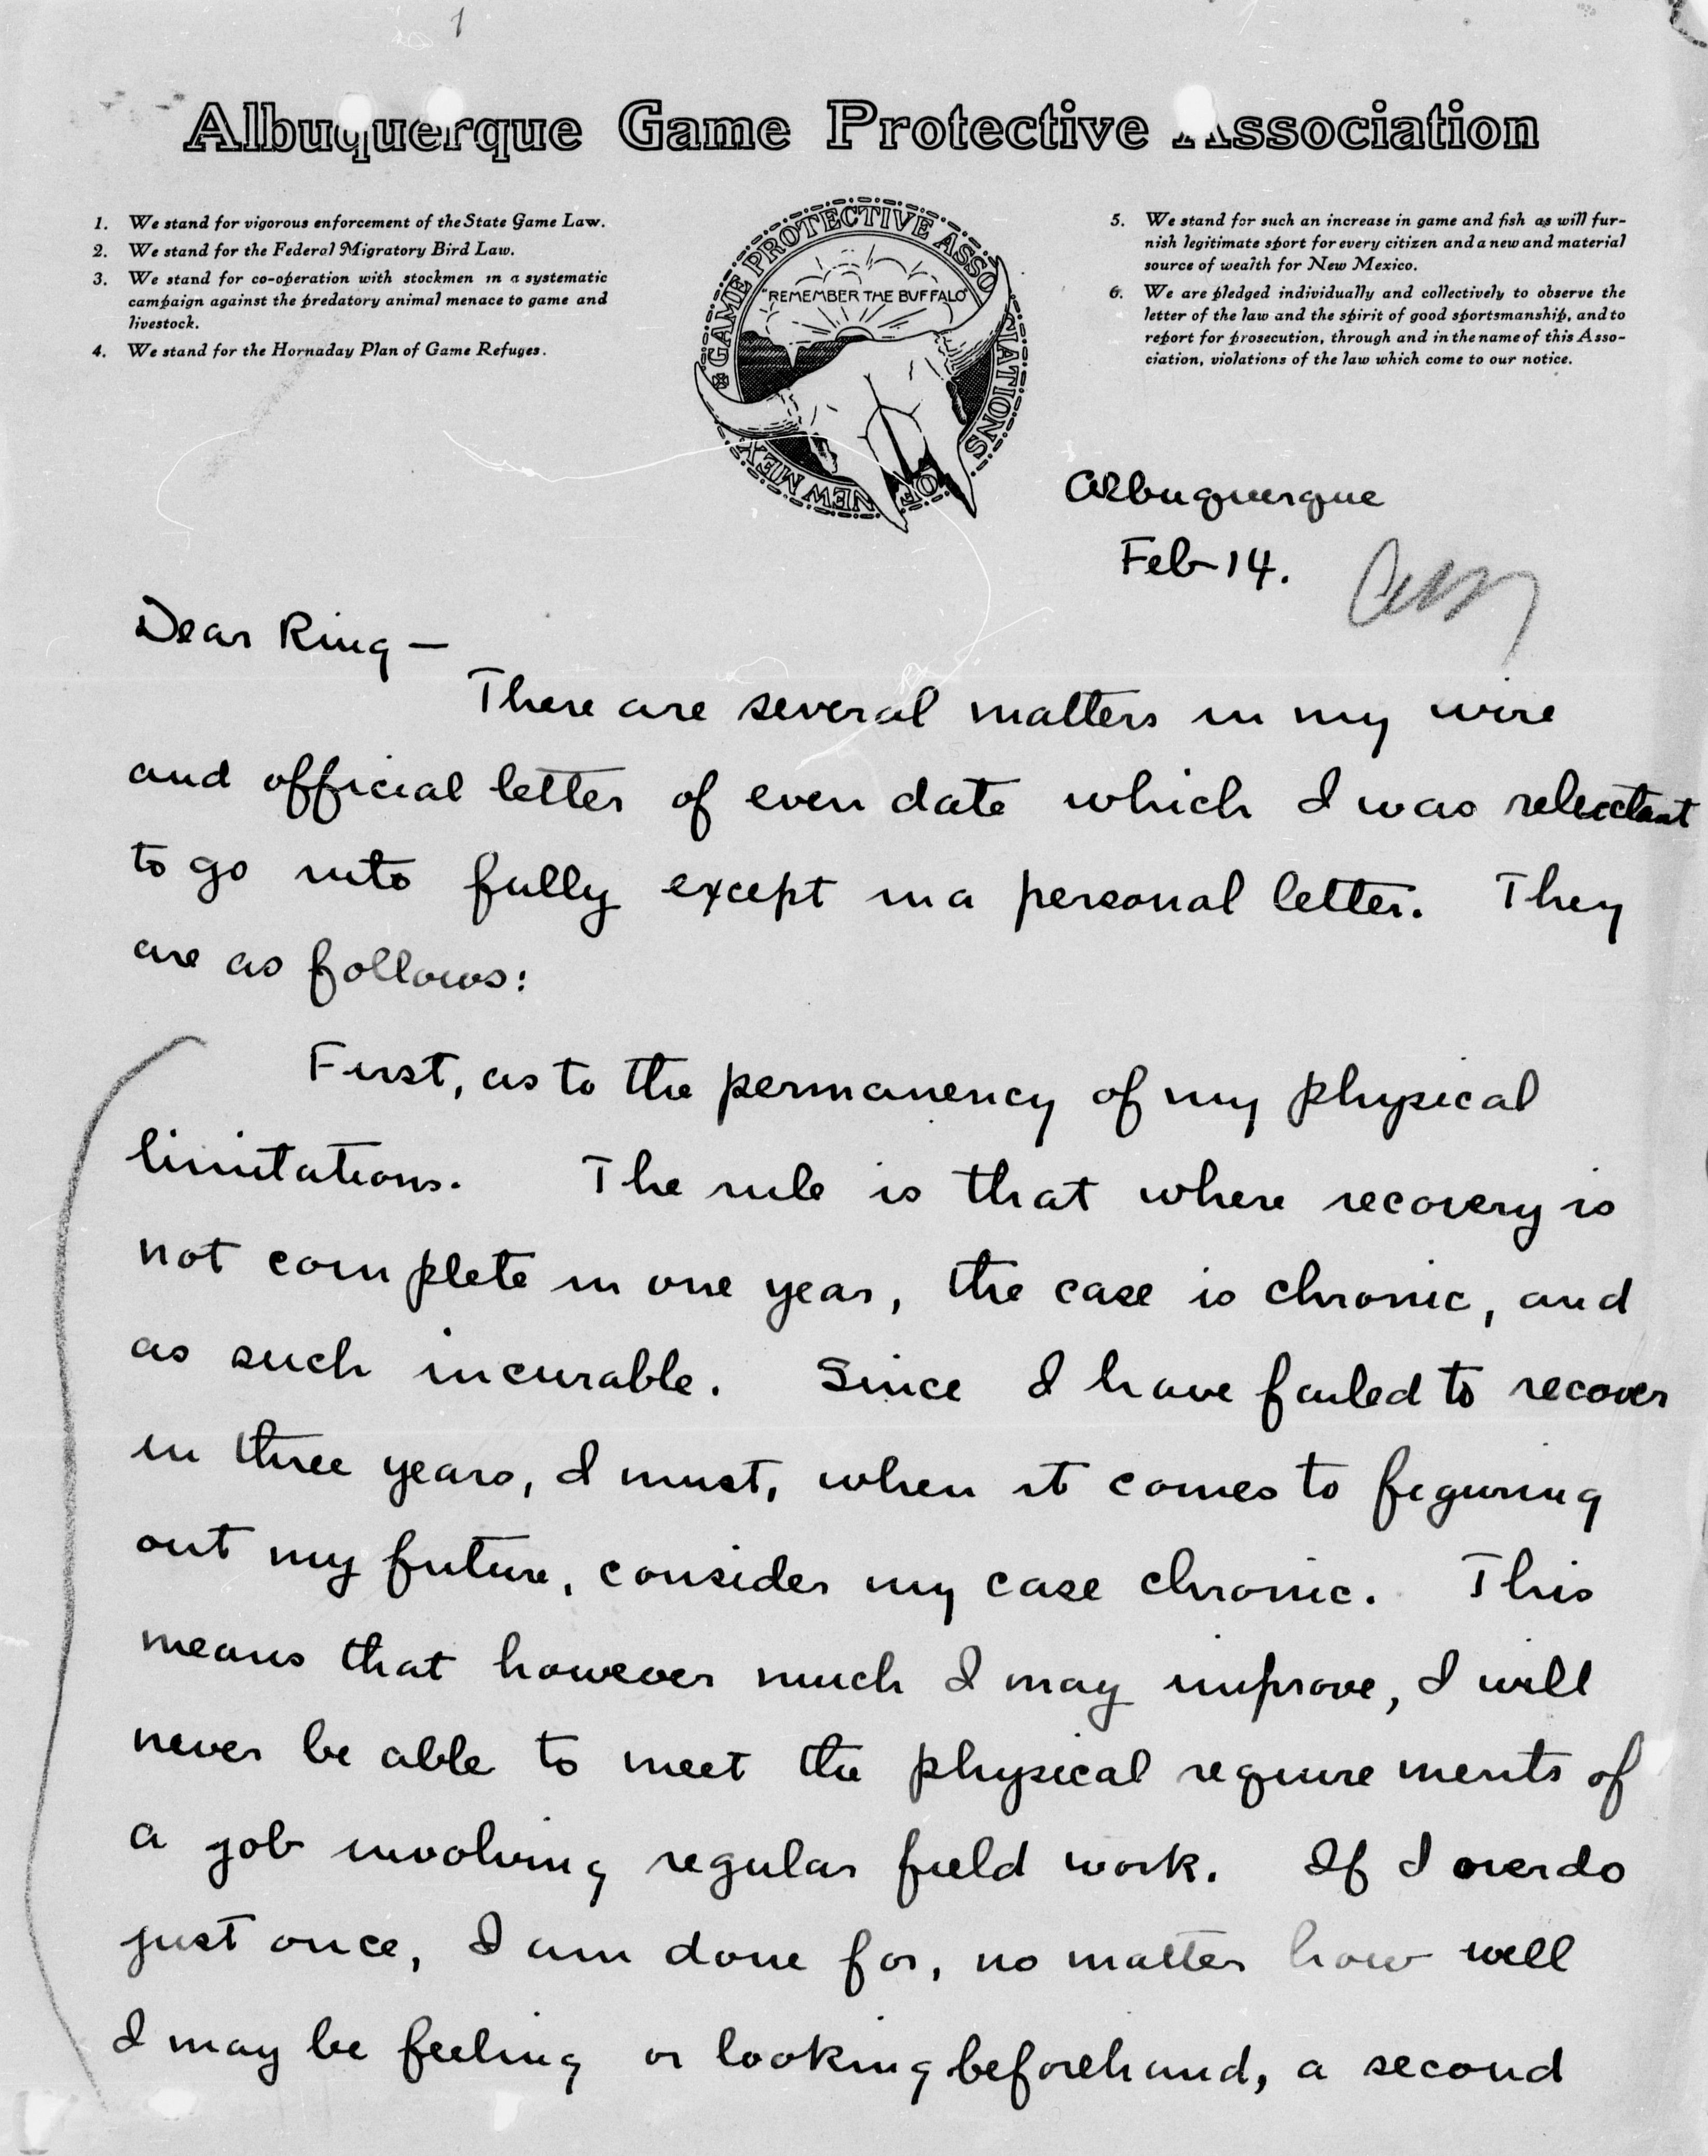 1
Albuquerque Game Protective Association
1. We stand for vigorous enforcement of the State Game Law.
2. We stand for the Federal Migratory Bird Law.
3. We stand for co-operation with stockmen in a systematic
campaign against the predatory animal menace to game and
livestock.
4. We stand for the Hornaday Plan of Game Refuges.
GAME PROTECTIVE ASSOCIATIONS OF NEW MEX
"REMEMBER THE BUFFALO"
5. We stand for such an increase in game and fish as will fur-
nish legitimate sport for every citizen and a new and material
source of wealth for New Mexico.
6. We are pledged individually and collectively to observe the
letter of the law and the spirit of good sportsmanship, and to
report for prosecution, through and in the name of this Asso-
ciation, violations of the law which come to our notice.
Albuquerque
Feb-14.
Dear Ring —
There are several matters in my wire
and official letter of even date which I was reluctant
to go into fully except in a personal letter. They
are as follows:
First, as to the permanency of my physical
limitations. The rule is that where recovery is
not complete in one year, the case is chronic, and
as such incurable. Since I have failed to recover
in three years, I must, when it comes to figuring
out my future, consider my case chronic. This
means that however much I may improve, I will
never be able to meet the physical requirements of
a job involving regular field work. If I overdo
just once, I am done for, no matter how well
I may be feeling or looking beforehand, a second